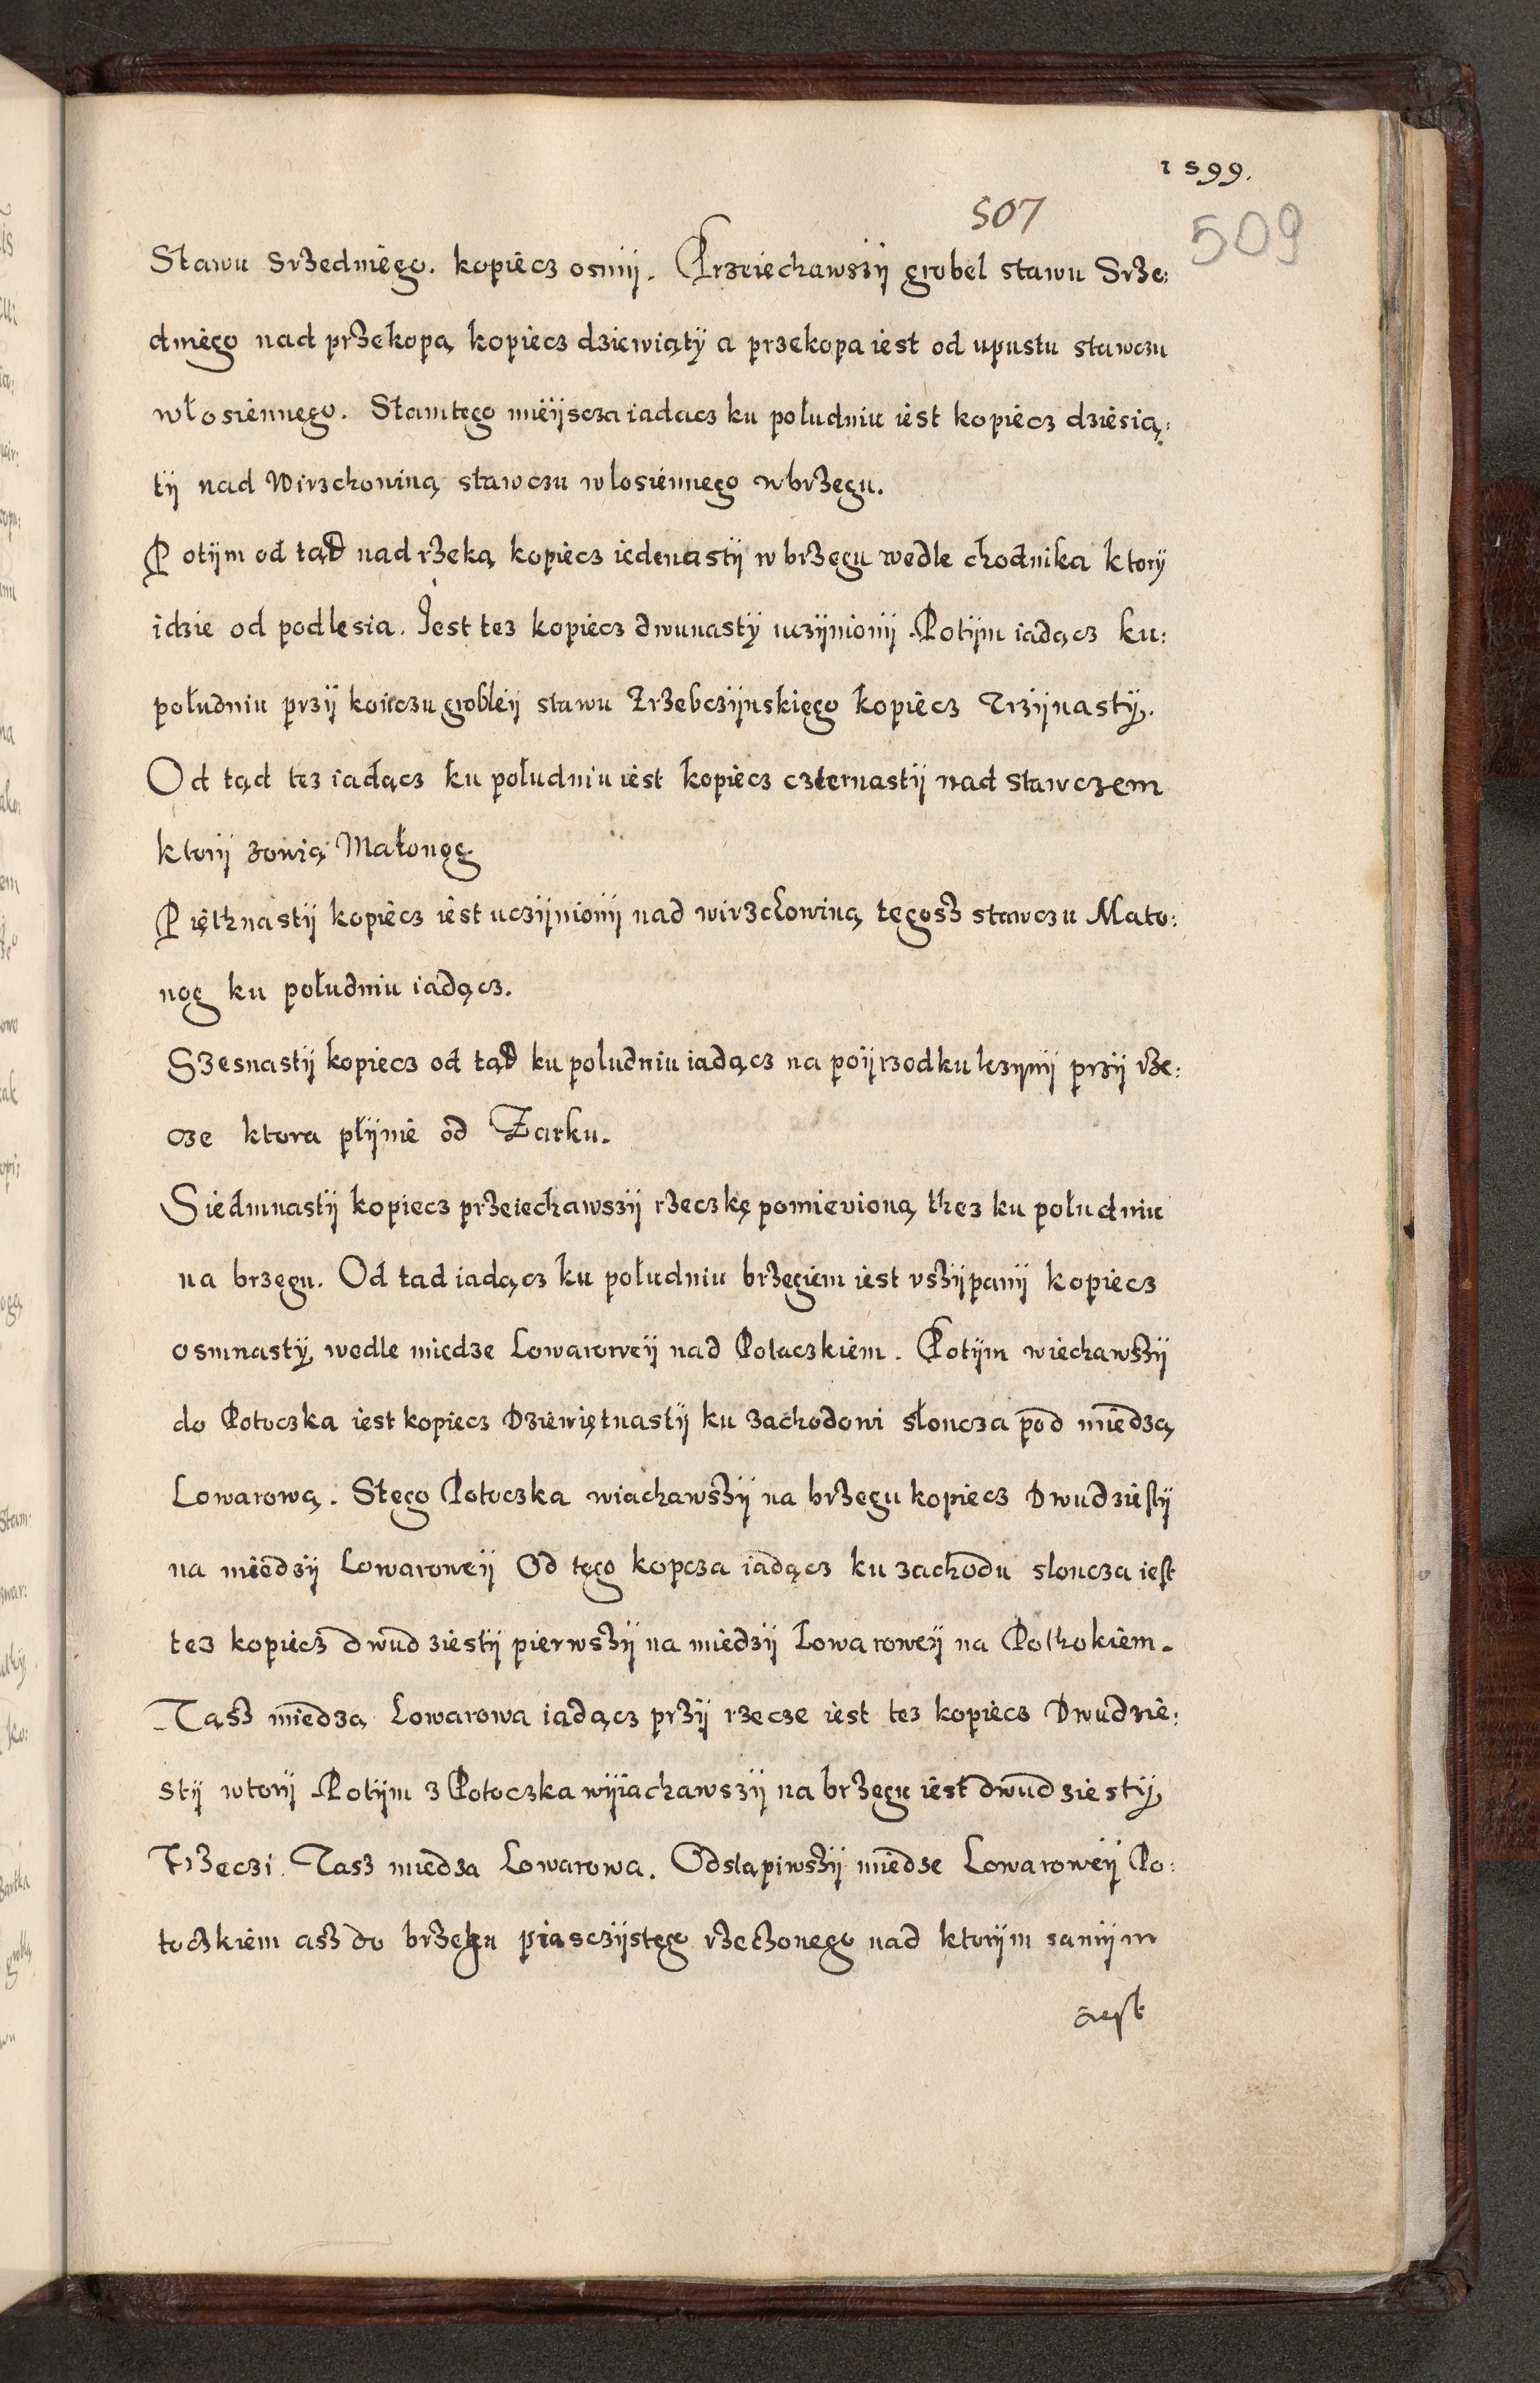 1599.
507
509
Stawu Srzedniego. kopiecz osmij. Przeiechawszij grobel stawu Srze:
dniego nad przekopą kopiecz dziewiąty a przekopa iest od upustu stawczu
włosiennego. Stamtego mieijscza iadacz ku południu iest kopiecz dziesią:
tij nad Wirzchowiną stawczu wlosiennego w brzegu.
Potijm od tąd nad rzeką kopiecz iedenastij w brzegu wedle chodnika ktory
idzie od podlesia. Jest tez kopiecz dwunasty uczijnionij. Potijm iadącz ku:
południu przij kończu grobleij stawu Zrzebczijnskiego kopiecz Trzijnasty.
Od tąd tez iadącz ku południu iest kopiecz czternastij nad stawczem
ktorij zowią Małonog
Piętknastij kopiecz iest uczijnionij nad wirzchowiną tegosz stawczu Mało:
nog ku południu iadącz.
Szesnastij kopiecz od tąd ku poludniu iadącz na poijrzodku lezijnij przij rze:
cze ktora płijnie od Zarku.
Siedmnastij kopiecz przeiechawszij rzeczkę pomienioną thez ku południu
na brzegu. Od tad iadącz ku południu brzegiem iest vszijpanij kopiecz
osmnasty wedle miedze Lowaroweij nad Potaczkiem. Potijm wiechawszij
do Potoczka iest kopiecz Dziewiętnastij ku zachodowi słoncza pod miedzą
Lowarową. Stego Potoczka wiachawszij na brzegu kopiecz Dwudziestij
na miedzij Lowaroweij Od tego kopcza iadącz ku zachodu sloncza iest
tez kopiecz dwudziestij pierwszij na miedzij Lowaroweij na Pothokiem.
Tąsz miedzą Lowarowa iadącz przij rzecze iest tez kopiecz Dwudzie:
stij wtorij Potijm z Potoczka wijiachawszij na brzegu iest dwudziesty
Trzeczi. Tasz miedza Lowarowa. Odstąpiwszij miedze Lowaroweij Po:
toczkiem asz do brzegu piasczijstego rzeczonego nad ktorijm samijm
iest